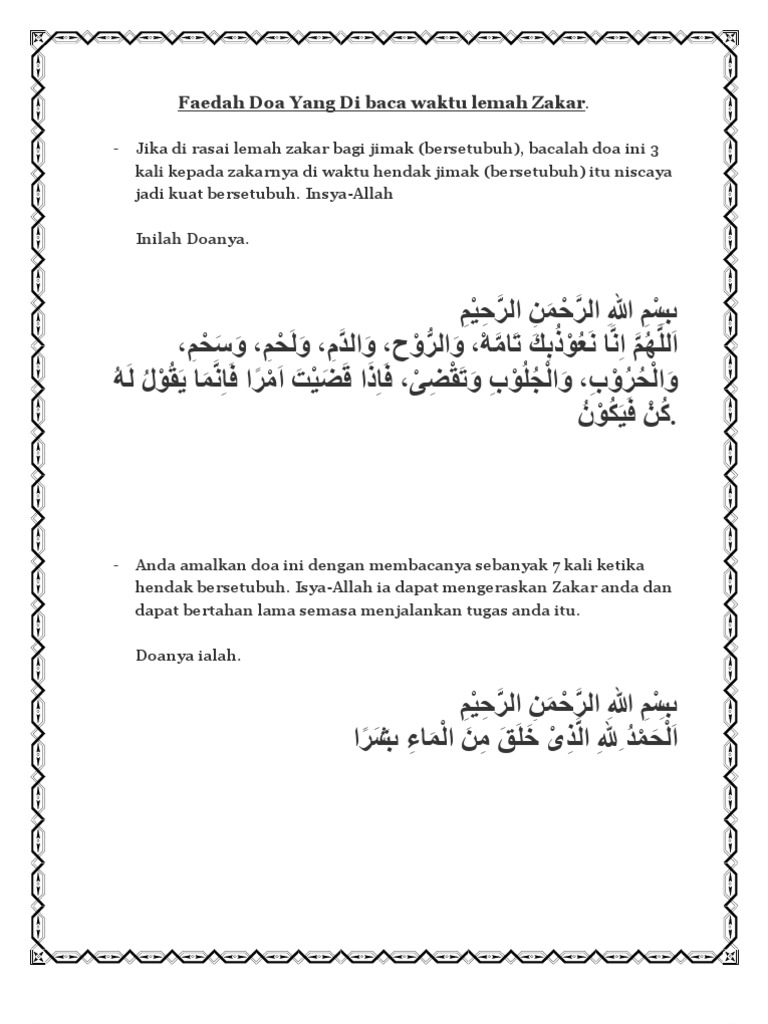 Faedah Doa Yang Di baca waktu lemah Zakar.
- Jika di rasai lemah zakar bagi jimak (bersetubuh), bacalah doa ini 3
kali kepada zakarnya di waktu hendak jimak (bersetubuh) itu niscaya
jadi kuat bersetubuh. Insya-Allah
Inilah Doanya.
بِسْمِ اللهِ الرَّحْمَنِ الرَّحِيْمِ
اَللَّهُمَّ اِنَّا نَعُوْذُبِكَ تَامَّهْ، وَالرُّوْحِ، وَالدَّمِ، وَلَحْمِ، وَسَحْمِ،
وَالْحُرُوْبِ، وَالْجُلُوْبِ وَتَقْضِىْ، فَاِذَا قَضَيْتَ اَمْرًا فَاِنَّمَا يَقُوْلُ لَهُ
كُنْ فَيَكُوْنُ.
- Anda amalkan doa ini dengan membacanya sebanyak 7 kali ketika
hendak bersetubuh. Isya-Allah ia dapat mengeraskan Zakar anda dan
dapat bertahan lama semasa menjalankan tugas anda itu.
Doanya ialah.
بِسْمِ اللهِ الرَّحْمَنِ الرَّحِيْمِ
اَلْحَمْدُ لِلّٰهِ الَّذِىْ خَلَقَ مِنَ الْمَاءِ بَشَرًا